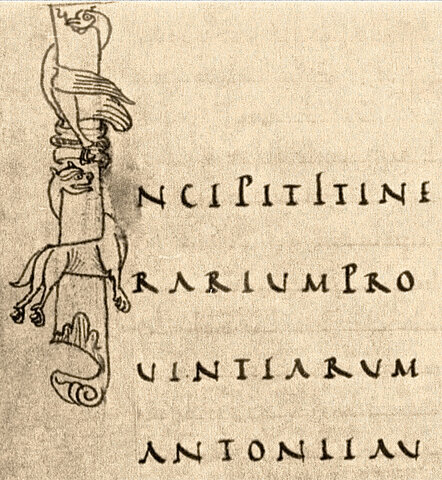 INCIPIT ITINE
RARIUM PRO
UINTIARUM
ANTONII AU